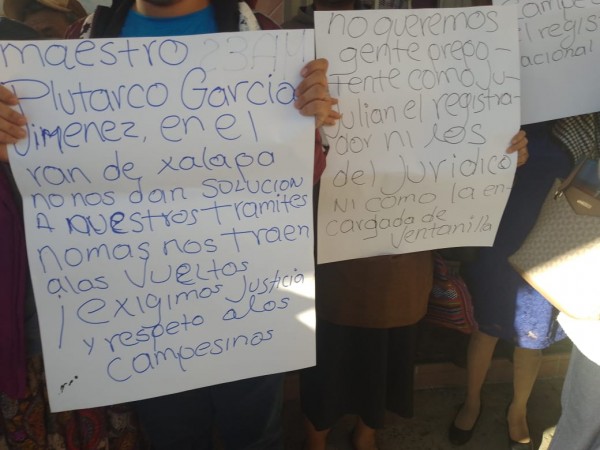 maestro
Plutarco Garcia
Jimenez, en el
ran de xalapa
no nos dan SOLUCION
A NUESTROS TRAMITES
nomas nos traen
a las vueltos
¡exigimos justicia
y respeto a los
campesinos
no queremos
gente prepo-
Tente como Ju-
Julian el registra-
dor ni los
del Juridico
Ni como la en-
cargada de
ventanilla
campes
el regist
nacional